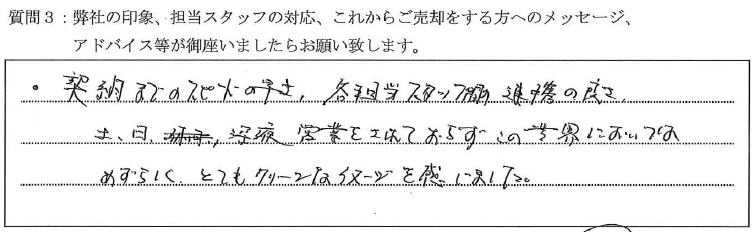 質問3:弊社の印象、担当スタッフの対応、これからご売却をする方へのメッセージ、
アドバイス等が御座いましたらお願い致します。
・契約までのスピードの早さ、各担当スタッフ間の連携の良さ、
土、日、深夜営業をされておらずこの業界においては
めずらしく、とてもクリーンなイメージを感じました。